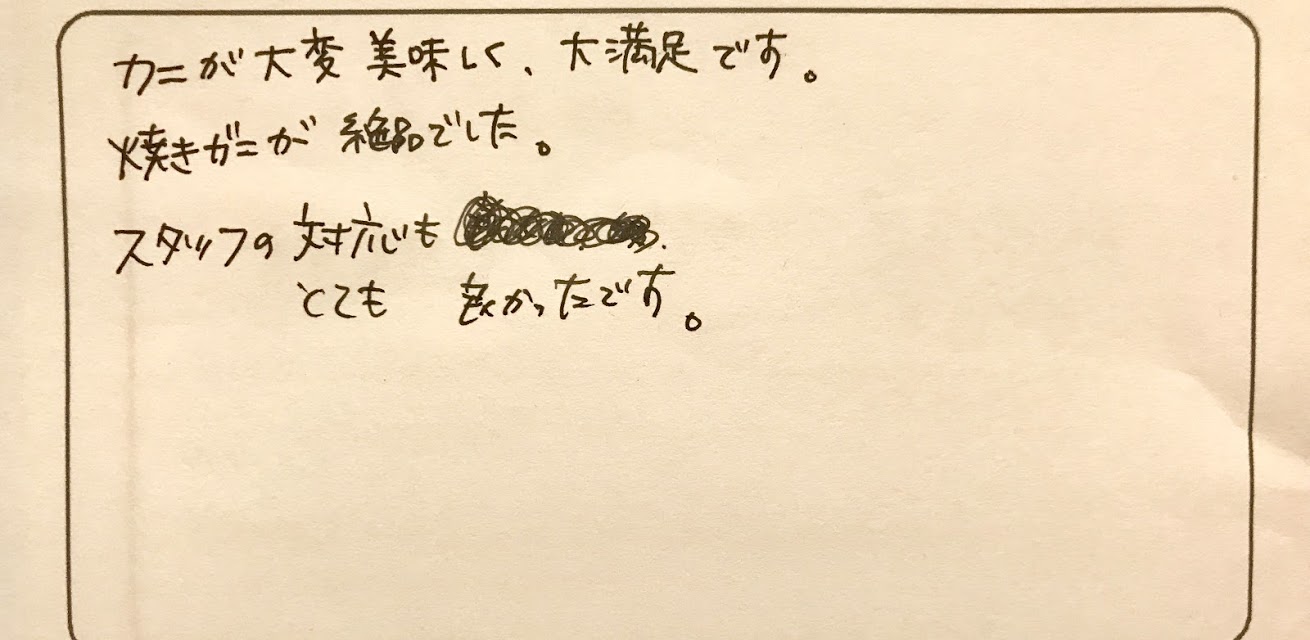 カニが大変美味しく、大満足です。
焼きガニが絶品でした。
スタッフの対応も
とても良かったです。